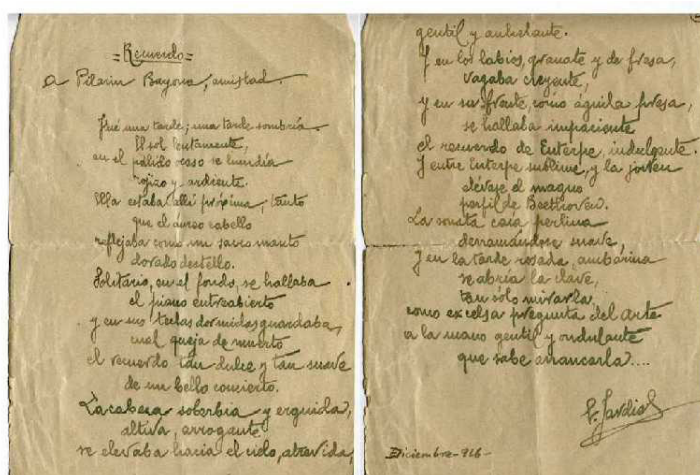 = Recuerdo =
A Pilarin Bayona, amistad.
Fué una tarde; una tarde sombría.
El sol lentamente,
en el pálido ocaso se hundía
rojizo y ardiente.
Ella estaba allí próxima, tanto
que el áureo cabello
reflejaba como un sacro manto
dorado destello.
Solitario, en el fondo, se hallaba
el piano entreabierto
y en sus teclas dormidas guardaba,
cual queja de muerto
el recuerdo tan dulce y tan suave
de un bello concierto.
La cabeza soberbia y erguida,
altiva, arrogante
se elevaba hacia el cielo, atrevida,
gentil y anhelante.
Y en los labios, granate y de fresa,
vagaba
y en su frente, como águila presa,
se hallaba impaciente
el recuerdo de Euterpe, indulgente.
Y entre Euterpe sublime, y la joven
el magno
perfil de Beethoven.
La sonata caía perlina
derramándose suave,
Y en la tarde rosada, ambarina
se abría la clave,
tan sólo mirarla
como excelsa pregunta del arte
a la mano gentil y ondulante
que sabe arrancarla....
E. Jardiel
Diciembre-916-